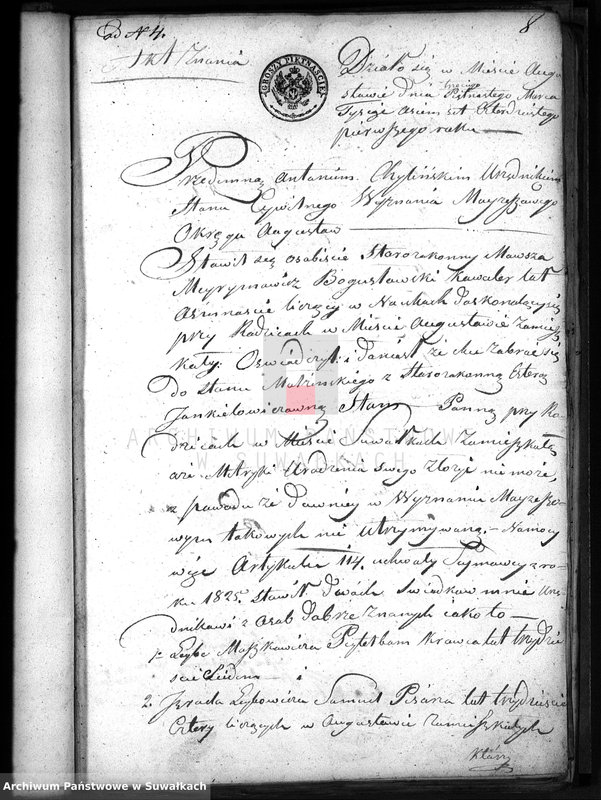 Ad N 4.
8
Akt Znania
GROSZY PIĘTNAŚCIE
Działo się w Mieście Augu-
stowie dnia Piętnastego Marca
Tysiąc osiemset czterdziestego
pierwszego roku
Przedemną Antonim Chylińskim Urzędnikiem
Stanu Cywilnego Wyznania Mojżeszowego
Okręgu Augustow
Stawił się osobiście Starozakonny Mowsza
Meyrymowicz Bogusławski Kawaler lat
osmnaście liczący w Naukach doskonalący się
przy Rodzicach w Mieście Augustowie zamięsz-
kały: Oświadczył i doniósł że chce zabrać się
do stanu Małżeńskiego z Starozakonną Esterą
Jankielowiczowną Panną przy Ro-
dzicach w Mieście Suwałkach zamięszkałą
Metryki Urodzenia swego złożyć nie może,
z powodu że dawniey w Wyznaniu Mojżeszo-
wym takowych nie utrzymywano. - Na mocy
więc Artykułu 114. uchwały Sejmowey z ro-
ku 1825. stawił dwóch świadkow mnie Urzę-
dnikowi z osob dobrze znanych iako to
1. Leybę Moszkowicza krawca lat trzydzie
ści siedem i
2. Izraela Leybowicza Pisarza lat trzydzieście
cztery liczących w Augustowie zamięszkałych
którzy
ARCHIWUM PAŃSTWOWE
W SUWAŁKACH
Archiwum Państwowe w Suwałkach